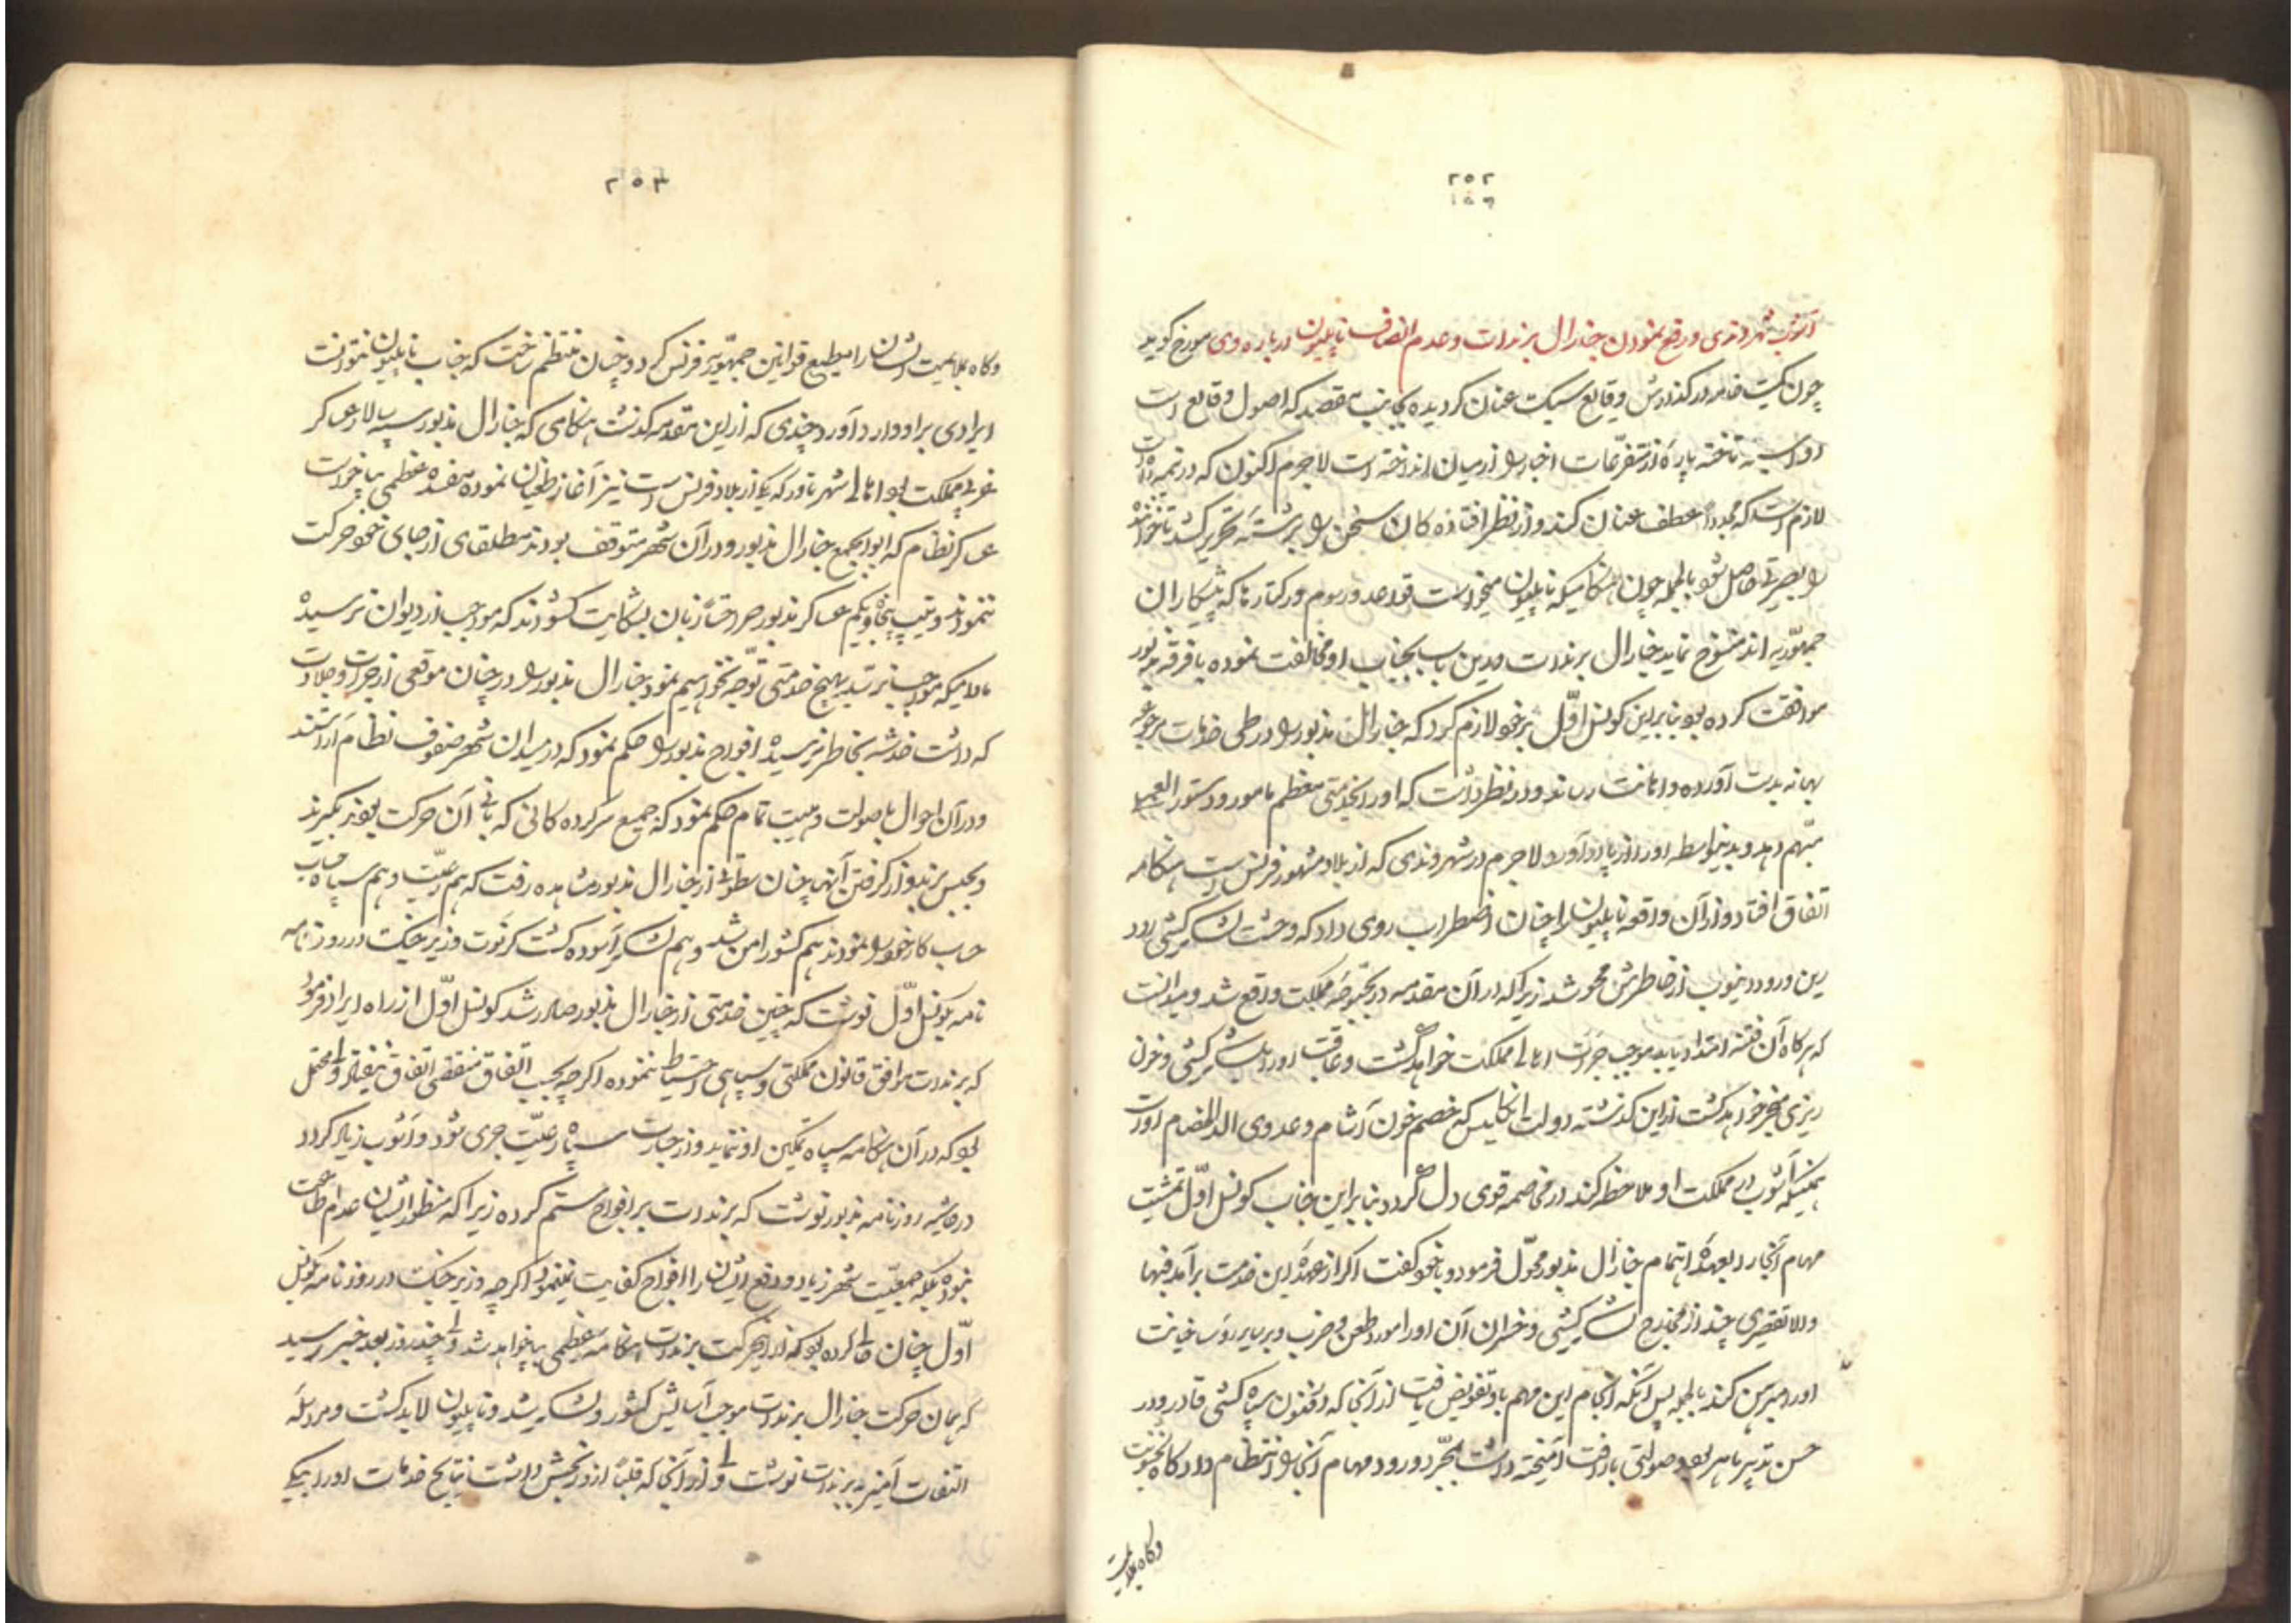 ۲۵۲
۱۵۳
آشوب شهر وندی و رفع نمودن جنارال برندات و عدم انصاف ناپلیون درباره وی مورخ گوید
چون کمیت خامه در گذارش وقایع سبک عنان گردیده بجانب مقصد که اصول وقایع است
تاخته پاره از متفرعات اخبار را از میان انداخته است لاجرم اکنون که در تتمه
لازم است که مجددا عطف عنان کند و از نظر افتاده کان سخن را برشته تحریر کشد تا خواننده
را بصیرتی حاصل شود بالجمله چون هنگامیکه ناپلیون میخواست قواعد و رسوم و رکتارنا که پیشکاران
جمهوریه اند منسوخ نماید جنارال برندات درین باب بجناب او مخالفت نموده با فرقه مذبور
موافقت کرده بود بنابراین کونسل اول برخود لازم کرد که جنارال مذبور را در طی خدمات مرجوعه
بهانه بدست آورده و اهانت رساند و در نظر داشت که او را بخدمتی معظم مامور و دستور العمل
مبهم دهد و بدینواسطه او را از پا درآورد لاجرم در شهر وندی که از بلاد مشهور فرنس است هنگامه
اتفاق افتاد و از آن واقعه ناپلیون را چنان اضطراب روی داد که وحشت لشکر کشی رود
رین و رود دنیوب از خاطرش محو شد زیرا که آن مقدمه در بحبوحه مملکت واقع شد و میدانست
که هرگاه آن فتنه امتداد یابد موجب جرئت اهالی مملکت خواهد گشت و عاقبت او را بلشکر کشی و خون
ریزی منجر خواهد گشت از این گذشته دولت انگلیس که خصم خون آشام و عدوی الد الخصام اوست
همینکه آشوب در مملکت او ملاحظه کند در مخاصمه قوی دل گردد بنابراین جناب کونسل اول تمشیت
مهام آنجا را بعهده اهتمام جنارال مذبور محول فرمود و با خود گفت اگر از عهده این خدمت برآمد فبها
والا تقصیری چند از مخارج لشکر کشی و خسران آن او را مورد طعن و ضرب و بر سایر روسا خیانت
او را مبرهن کند بالجمله پس از آنکه انجام این مهم باو تفویض یافت از آنجا که در فنون سپاه کشی قادر و در
حسن تدبیر ماهر بود صولتی با رافت آمیخته داشت بمجرد ورود مهام آنجا را انتظام داد گاه بخشونت
وگاه بملایمت
۲۵۳
وگاه بملایمت ایشان را مطیع قوانین جمهوریه فرنس کرد و چنان منتظم ساخت که جناب ناپلیون نتوانست
ایرادی بر او وارد آورد چندی که از این مقدمه گذشت هنگامی که جنارال مذبور سپه سالار عساکر
غربی مملکت بود اهالی شهر تاور که یکی از بلاد فرنس است نیز آغاز طغیان نموده مفسده عظمی بپا خواست
عساکر نظام که ابوابجمع جنارال مذبور و در آن شهر متوقف بودند مطلقا از جای خود حرکت
ننمودند و تیپ پنجاه و یکم عساکر مذبور صراحتاً زبان بشکایت گشودند که مواجب از دیوان نرسیده
مادامیکه مواجب نرسد بهیچ خدمتی توجه نخواهیم نمود جنارال مذبور را در چنان موقعی از جرئت و جلادت
که داشت خدشه بخاطر نرسیده افواج مذبور را حکم نمود که در میدان شهر صفوف نظام آراستند
و در آن احوال با صولت و هیبت تمام حکم نمود که جمیع سرکرده کانی که بانی آن حرکت بودند بگیرند
و بحبس برند و از گرفتن آنها چنان سطوتی از جنارال مذبور مشاهده رفت که هم رعیت و هم سپاه حساب
حساب کار خود را نمودند هم کشور امن شد و هم لشکر آسوده گشت کرنوت وزیر جنگ در روز نامه
نامه بکونسل اول نوشت که چنین خدمتی از جنارال مذبور صادر شد کونسل اول از راه ایراد فرمود
که برندات موافق قانون مملکتی و سپاهی احتیاط ننموده اگرچه بحسب اتفاق منقضی اتفاق نیفتاد ولی محتمل
بود که در آن هنگامه سپاه تمکین او ننماید و از جسارت سپاه رعیت جری شود و آشوب زیاد گردد
در حاشیه روزنامه مذبور نوشت که برندات بر افواج ستم کرده زیرا که منظور ایشان عدم اطاعت
نبوده بلکه جمعیت شهر زیاد و دفع ایشان را افواج کفایت نمینمود اگرچه وزیر جنگ در روز نامه بکونسل
اول چنان حالی کرده بود که از این حرکت برندات هنگامه عظیمی بپا خواهد شد ولی چند روز بعد خبر رسید
که همان حرکت جنارال برندات موجب آسایش کشور و لشکر شد و ناپلیون لابد گشت و مراسله
التفات آمیز به برندات نوشت ولی از آنجا که قلباً از او رنجش داشت نتایج خدمات او را بیکی